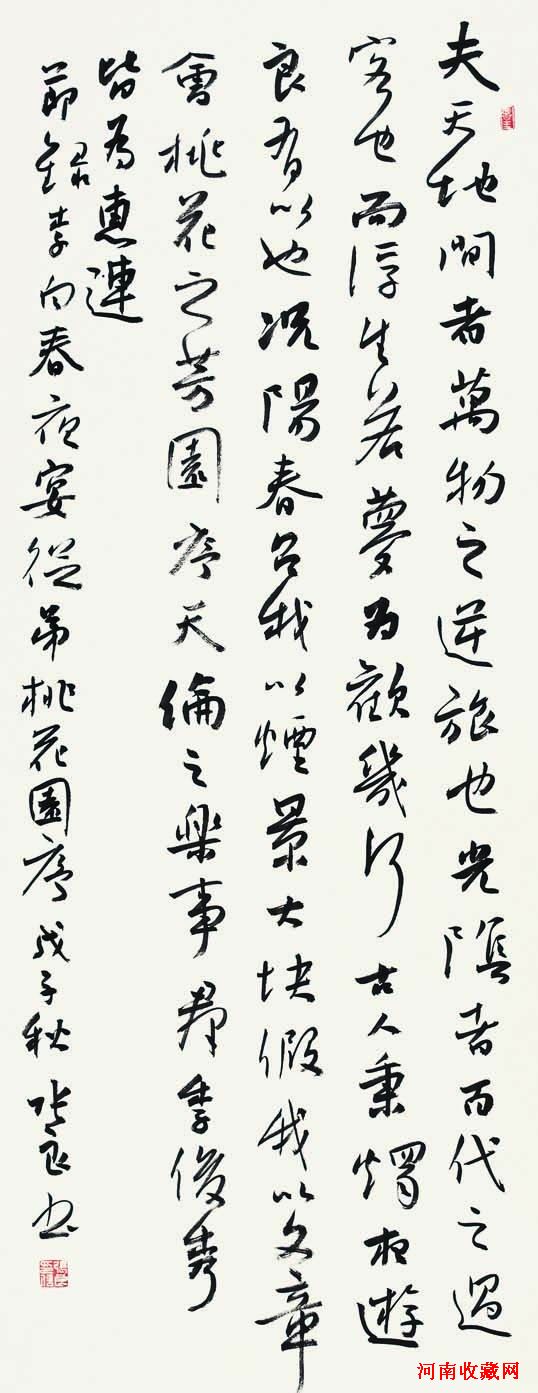 夫天地間者萬物之逆旅也光陰者百代之過
客也而浮生若夢為歡幾何古人秉燭夜遊
良有以也況陽春召我以煙景大塊假我以文章
會桃花之芳園序天倫之樂事群季俊秀
皆為惠連
節錄李白春夜宴從弟桃花園序戊子秋张书
河南收藏网